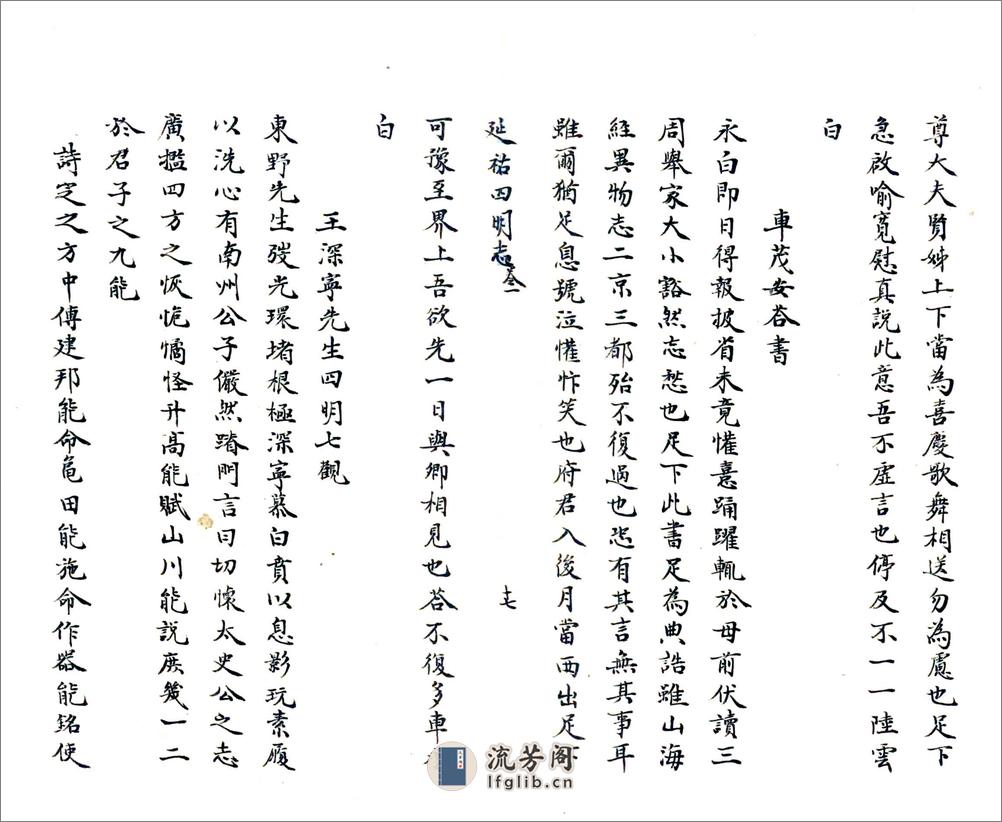 尊大夫賢姊上下當為喜慶歌舞相送勿為慮也足下
急啟喻寬慰真說此意吾不虛言也停及不一一陸雲
白
車茂安荅書
永白即日得報披省未竟懽憙踊躍輒於母前伏讀三
周舉家大小豁然忘愁也足下此書足為典誥雖山海
經異物志二京三都殆不復過也恐有其言無其事耳
雖爾猶足息號泣懽忭笑也府君入後月當西出足下
延祐四明志 卷一
十七
可豫至界上吾欲先一日與卿相見也荅不復多車永
白
王深寧先生四明七觀
東野先生弢光環堵根極深寧慕白賁以息影玩素履
以洗心有南州公子儼然踏門言曰切懷太史公之志
廣攬四方之恢恑憰怪升高能賦山川能說庶幾一二
於君子之九能
詩定之方中傳建邦能命龜田能施命作器能銘使
流芳阁
lfglib.cn